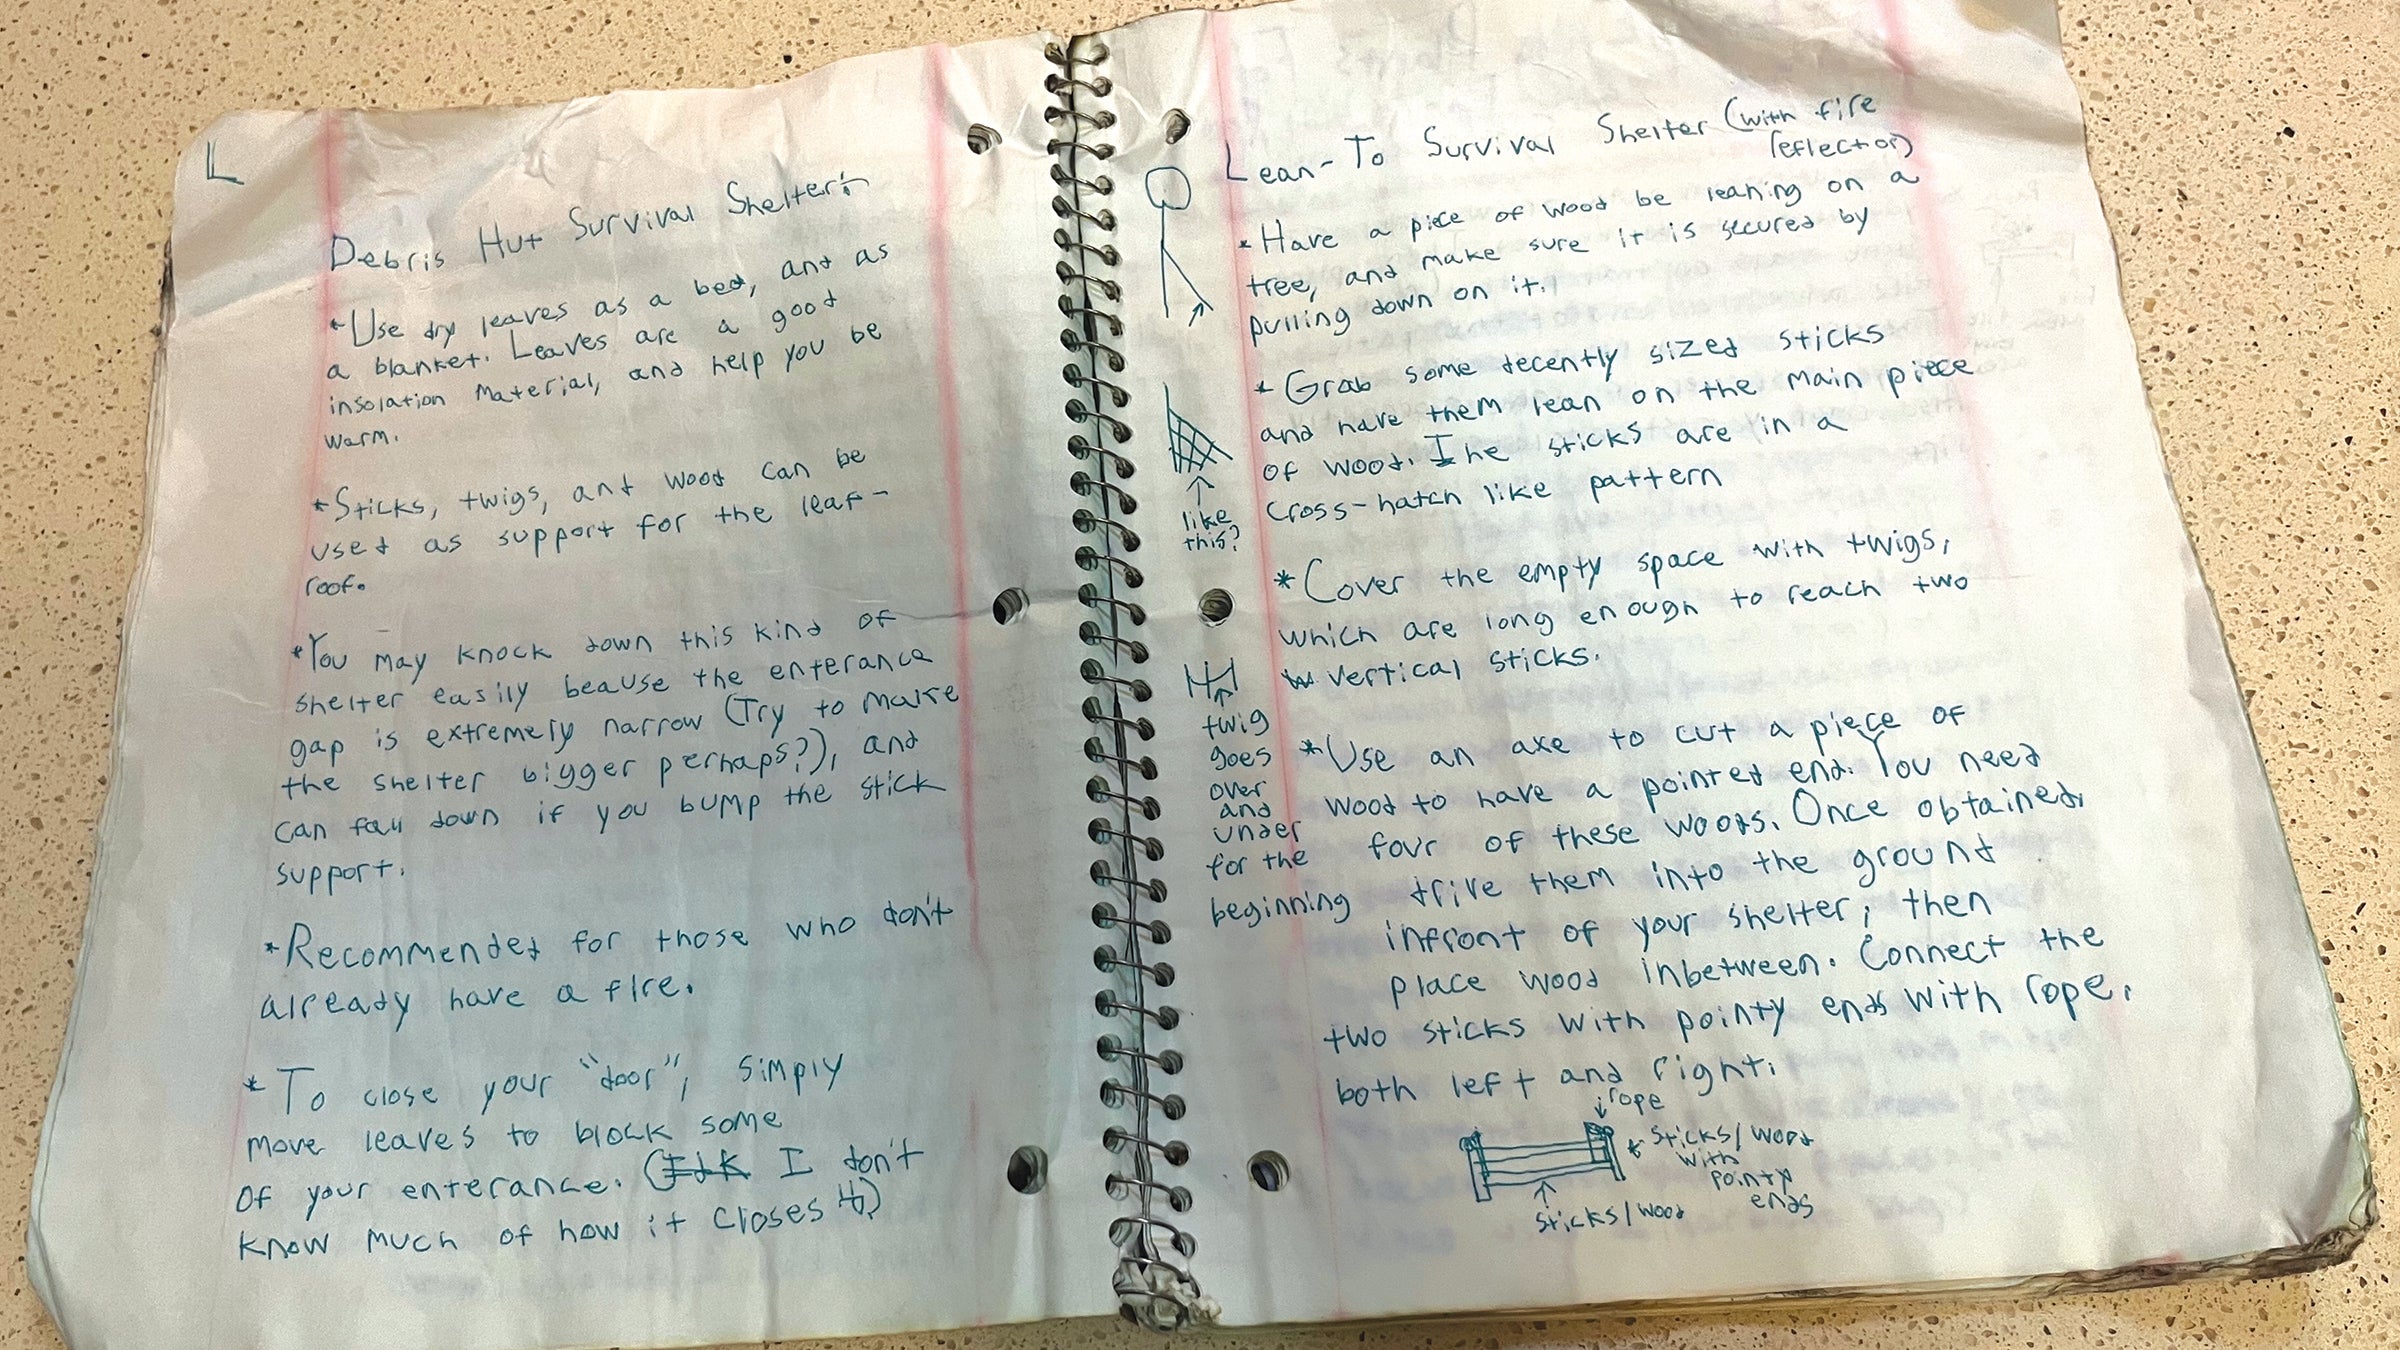 Debris Hut Survival Shelter:
*Use dry leaves as a bed, and as
a blanket. Leaves are a good
insolation material, and help you be
warm.
*Sticks, twigs, and wood can be
used as support for the leaf-
roof.
*You may knock down this kind of
shelter easily beause the enterance
gap is extremely narrow (Try to make
the shelter bigger perhaps?), and
can fall down if you bump the stick
support.
*Recommended for those who don't
already have a fire.
*To close your "door", simply
move leaves to block some
of your enterance. (Idk I don't
know much of how it closes)
Lean-To Survival Shelter (with fire
reflector)
*Have a piece of wood be leaning on a
tree, and make sure it is secured by
pulling down on it.
*Grab some decently sized sticks
and have them lean on the main piece
of wood. The sticks are in a
cross-hatch like pattern
like
this?
*Cover the empty space with twigs,
which are long enough to reach two
vertical sticks.
twig
goes
over
and
under
for the
beginning
*Use an axe to cut a piece of
wood to have a pointed end. You need
four of these woods. Once obtained,
drive them into the ground
infront of your shelter, then
place wood inbetween. Connect the
two sticks with pointy ends with rope,
both left and right.
rope
sticks/wood
with
pointy
ends
sticks/wood